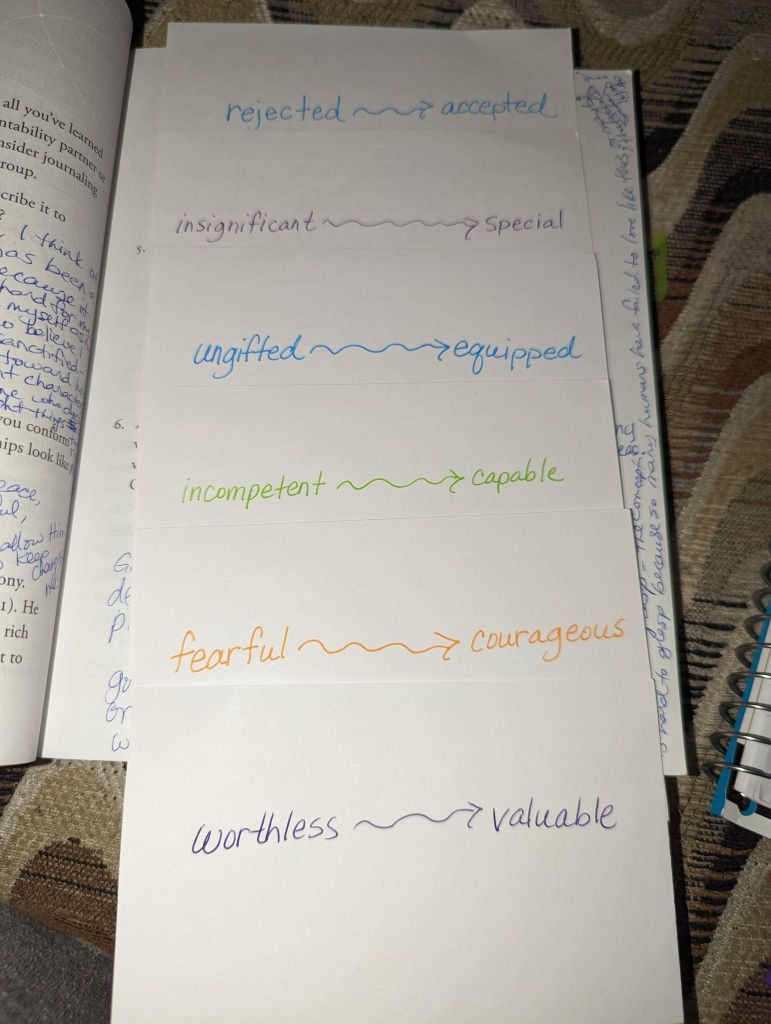 all you've learned
ntability partner or
nsider journaling
roup.
cribe it to
?
I think
has been a
ecause it
hard for
myself as
o believe
sanctified
toward
character
one who
you conform
ips look like
eace,
ful,
allow
to keep
ony.
1). He
rich
t to
rejected accepted
insignificant special
5.
ungifted equipped
6.
incompetent capable
fearful courageous
worthless valuable
G
de
p
go
or
w
the concept
hard to grasp because so many humans have failed to love like this